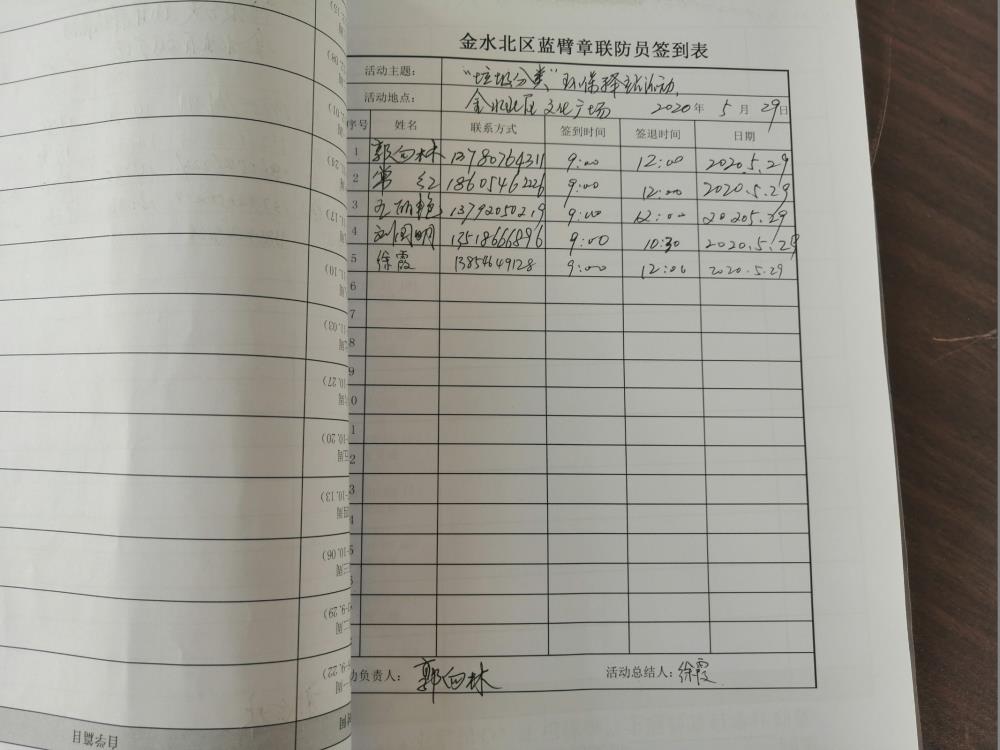 金水北区蓝臂章联防员签到表
活动主题： "垃圾分类"环保驿站活动
活动地点： 金水北区文化广场 2020年5月29日
序号 姓名 联系方式 签到时间 签退时间 日期
1 郭向林 13780764311 9:00 12:00 2020.5.29
2 常红 18605462226 9:00 12:00 2020.5.29
3 13792050219 9:00 12:00 20205.29
4 刘国明 13518666896 9:00 10:30 2020.5.29
5 徐霞 13854649128 9:00 12:00 2020.5.29
6
7
8
9
0
1
2
3
4
动负责人： 郭向林 活动总结人： 徐霞
11.10)
11.03)
10.27)
-10.20)
-10.13)
-10.06)
-9.29)
-9.22)
自学篇目